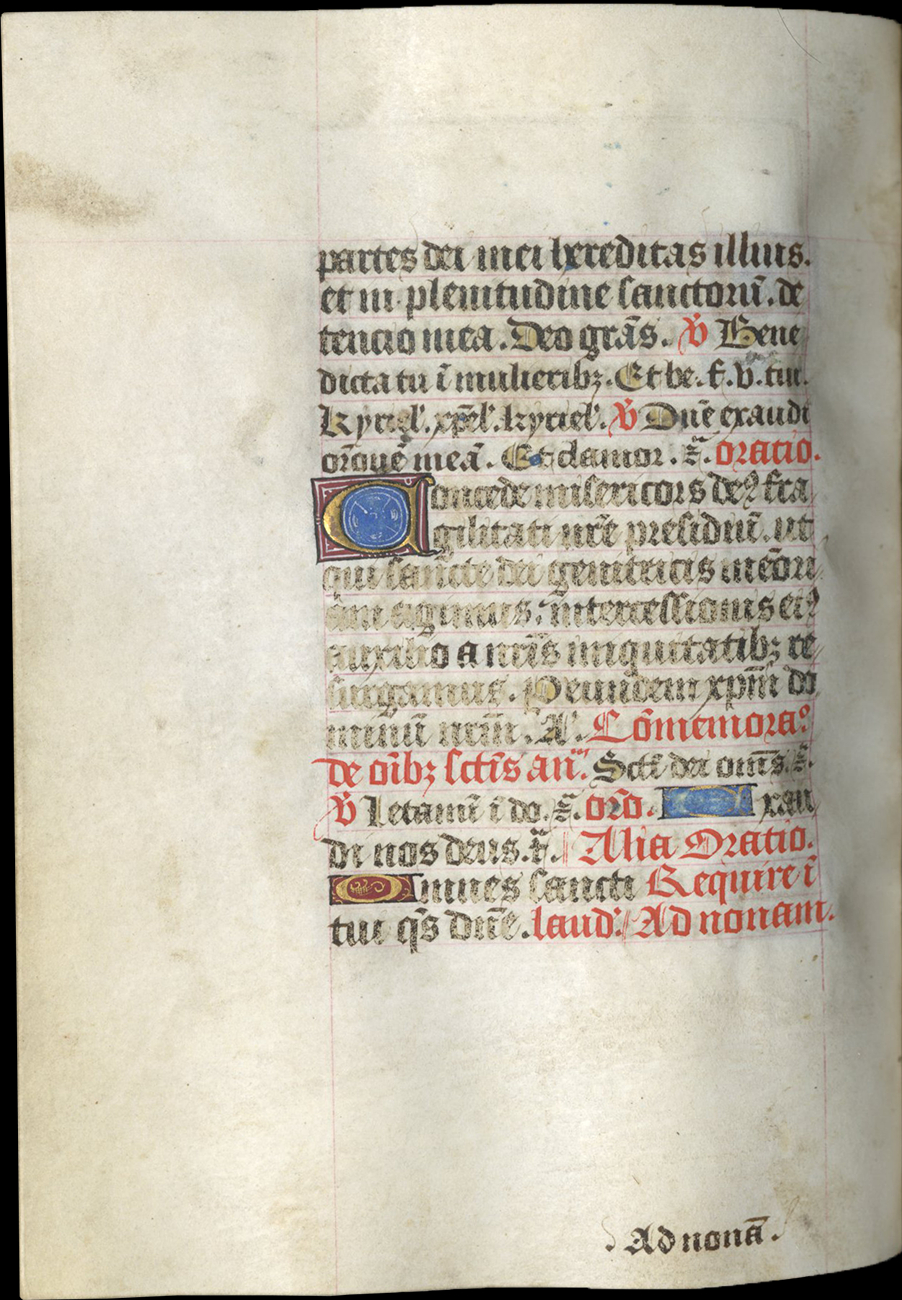 partes dei mei hereditas illius.
et in plenitudine sanctorū. de
tencio mea. Deo grās. v̄ Bene
dicta tu ī mulieribꝫ. Et be. f. v. tui.
Kyriel'. xp̄el'. kyriel'. v̄ Dn̄e exaudi
orōnē meā. Et clamor. r̄. oratio.
Concede misericors deꝰ fra
gilitati nr̄e presidiū. ut
qui sancte dei genitricis meōri
am agimus. intercessionis eiꝰ
auxilio a nr̄is iniquitatibꝫ re
surgamus. Per eundem xp̄m do
minū nr̄m. A'. Cōmemoraꝰ
de oībꝫ sctīs an̄. Sctī dei om̄s. r̄.
v̄ Letamī ī do. r̄. orō. Exau
di nos deus. r̄. Alia Oratio.
Omnes sancti Require ī
tui qs̄ dn̄e. laud'. Ad nonam.
Ad nonā.